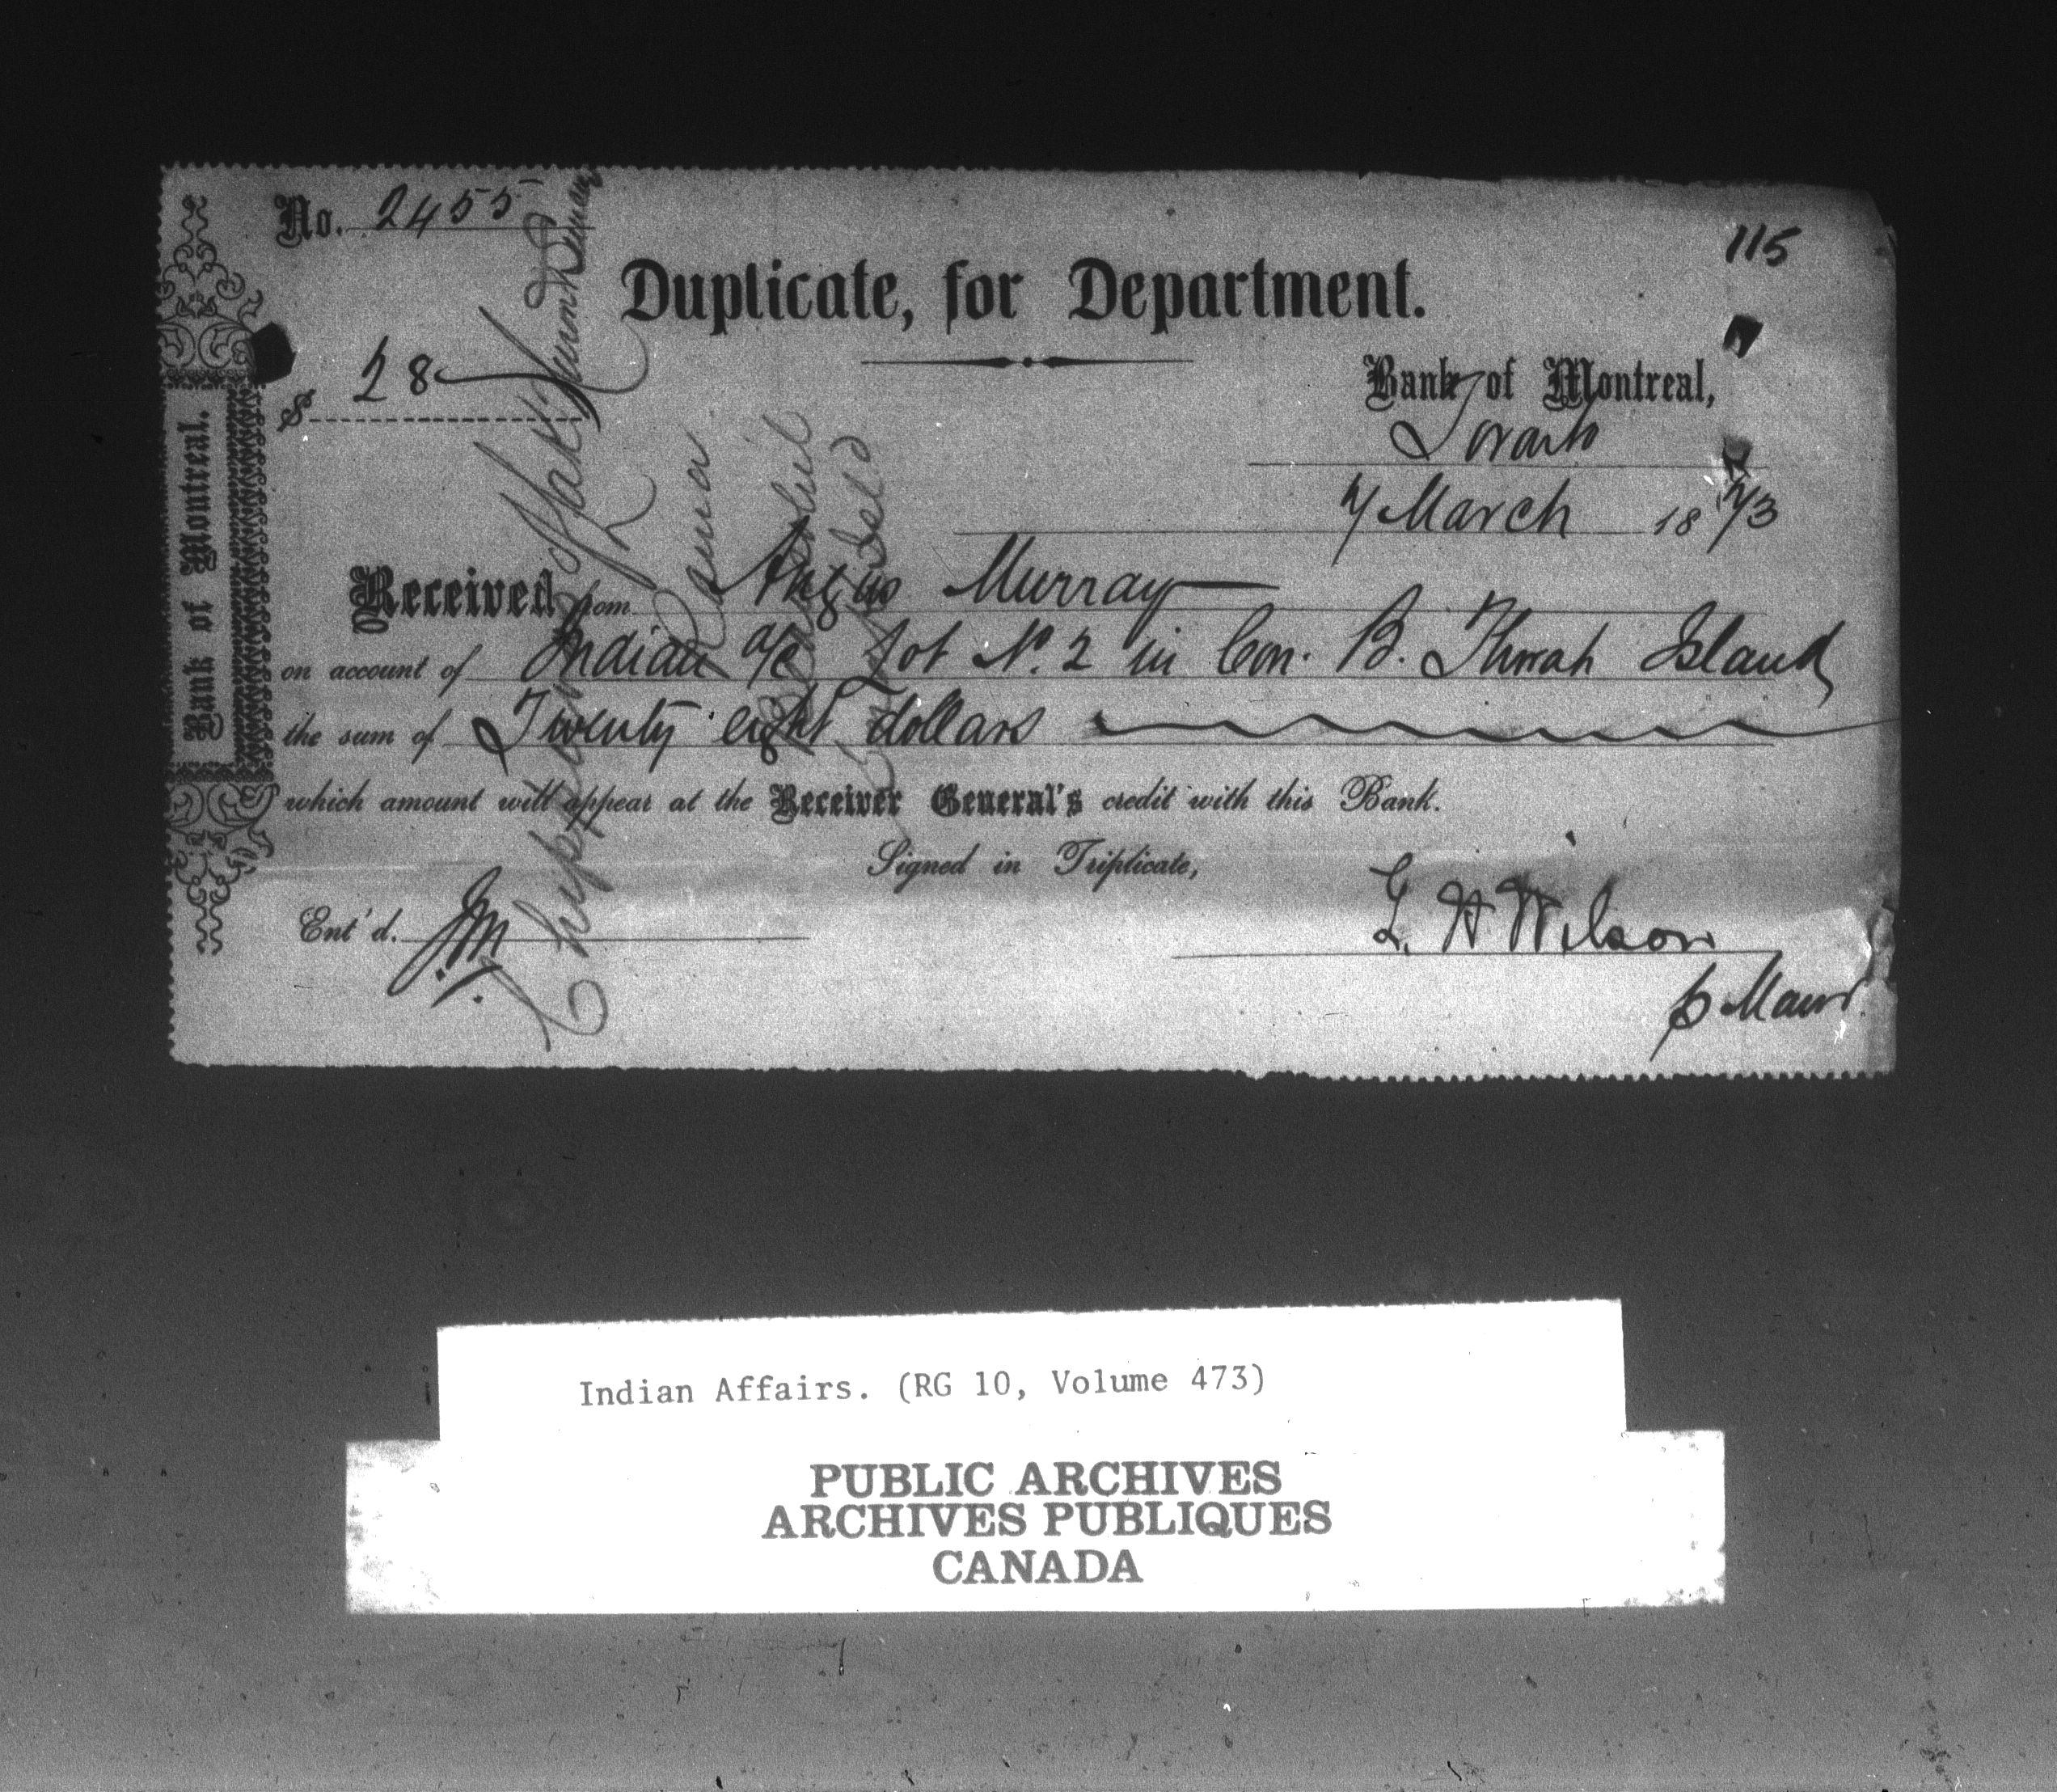 No. 2455
115
Duplicate, for Department.
$ 28
Bank of Montreal,
Toronto
7 March 1873
Received from Angus Murray
on account of Indian a/c Lot No. 2 in Con. B. Thorah Island
the sum of Twenty eight dollars
which amount will appear at the Receiver General's credit with this Bank.
Signed in Triplicate,
Ent'd. J.M.
G. H Wilson
p Man
Bank of Montreal.
Chippewas
Rama
Indian Affairs. (RG 10, Volume 473)
PUBLIC ARCHIVES
ARCHIVES PUBLIQUES
CANADA